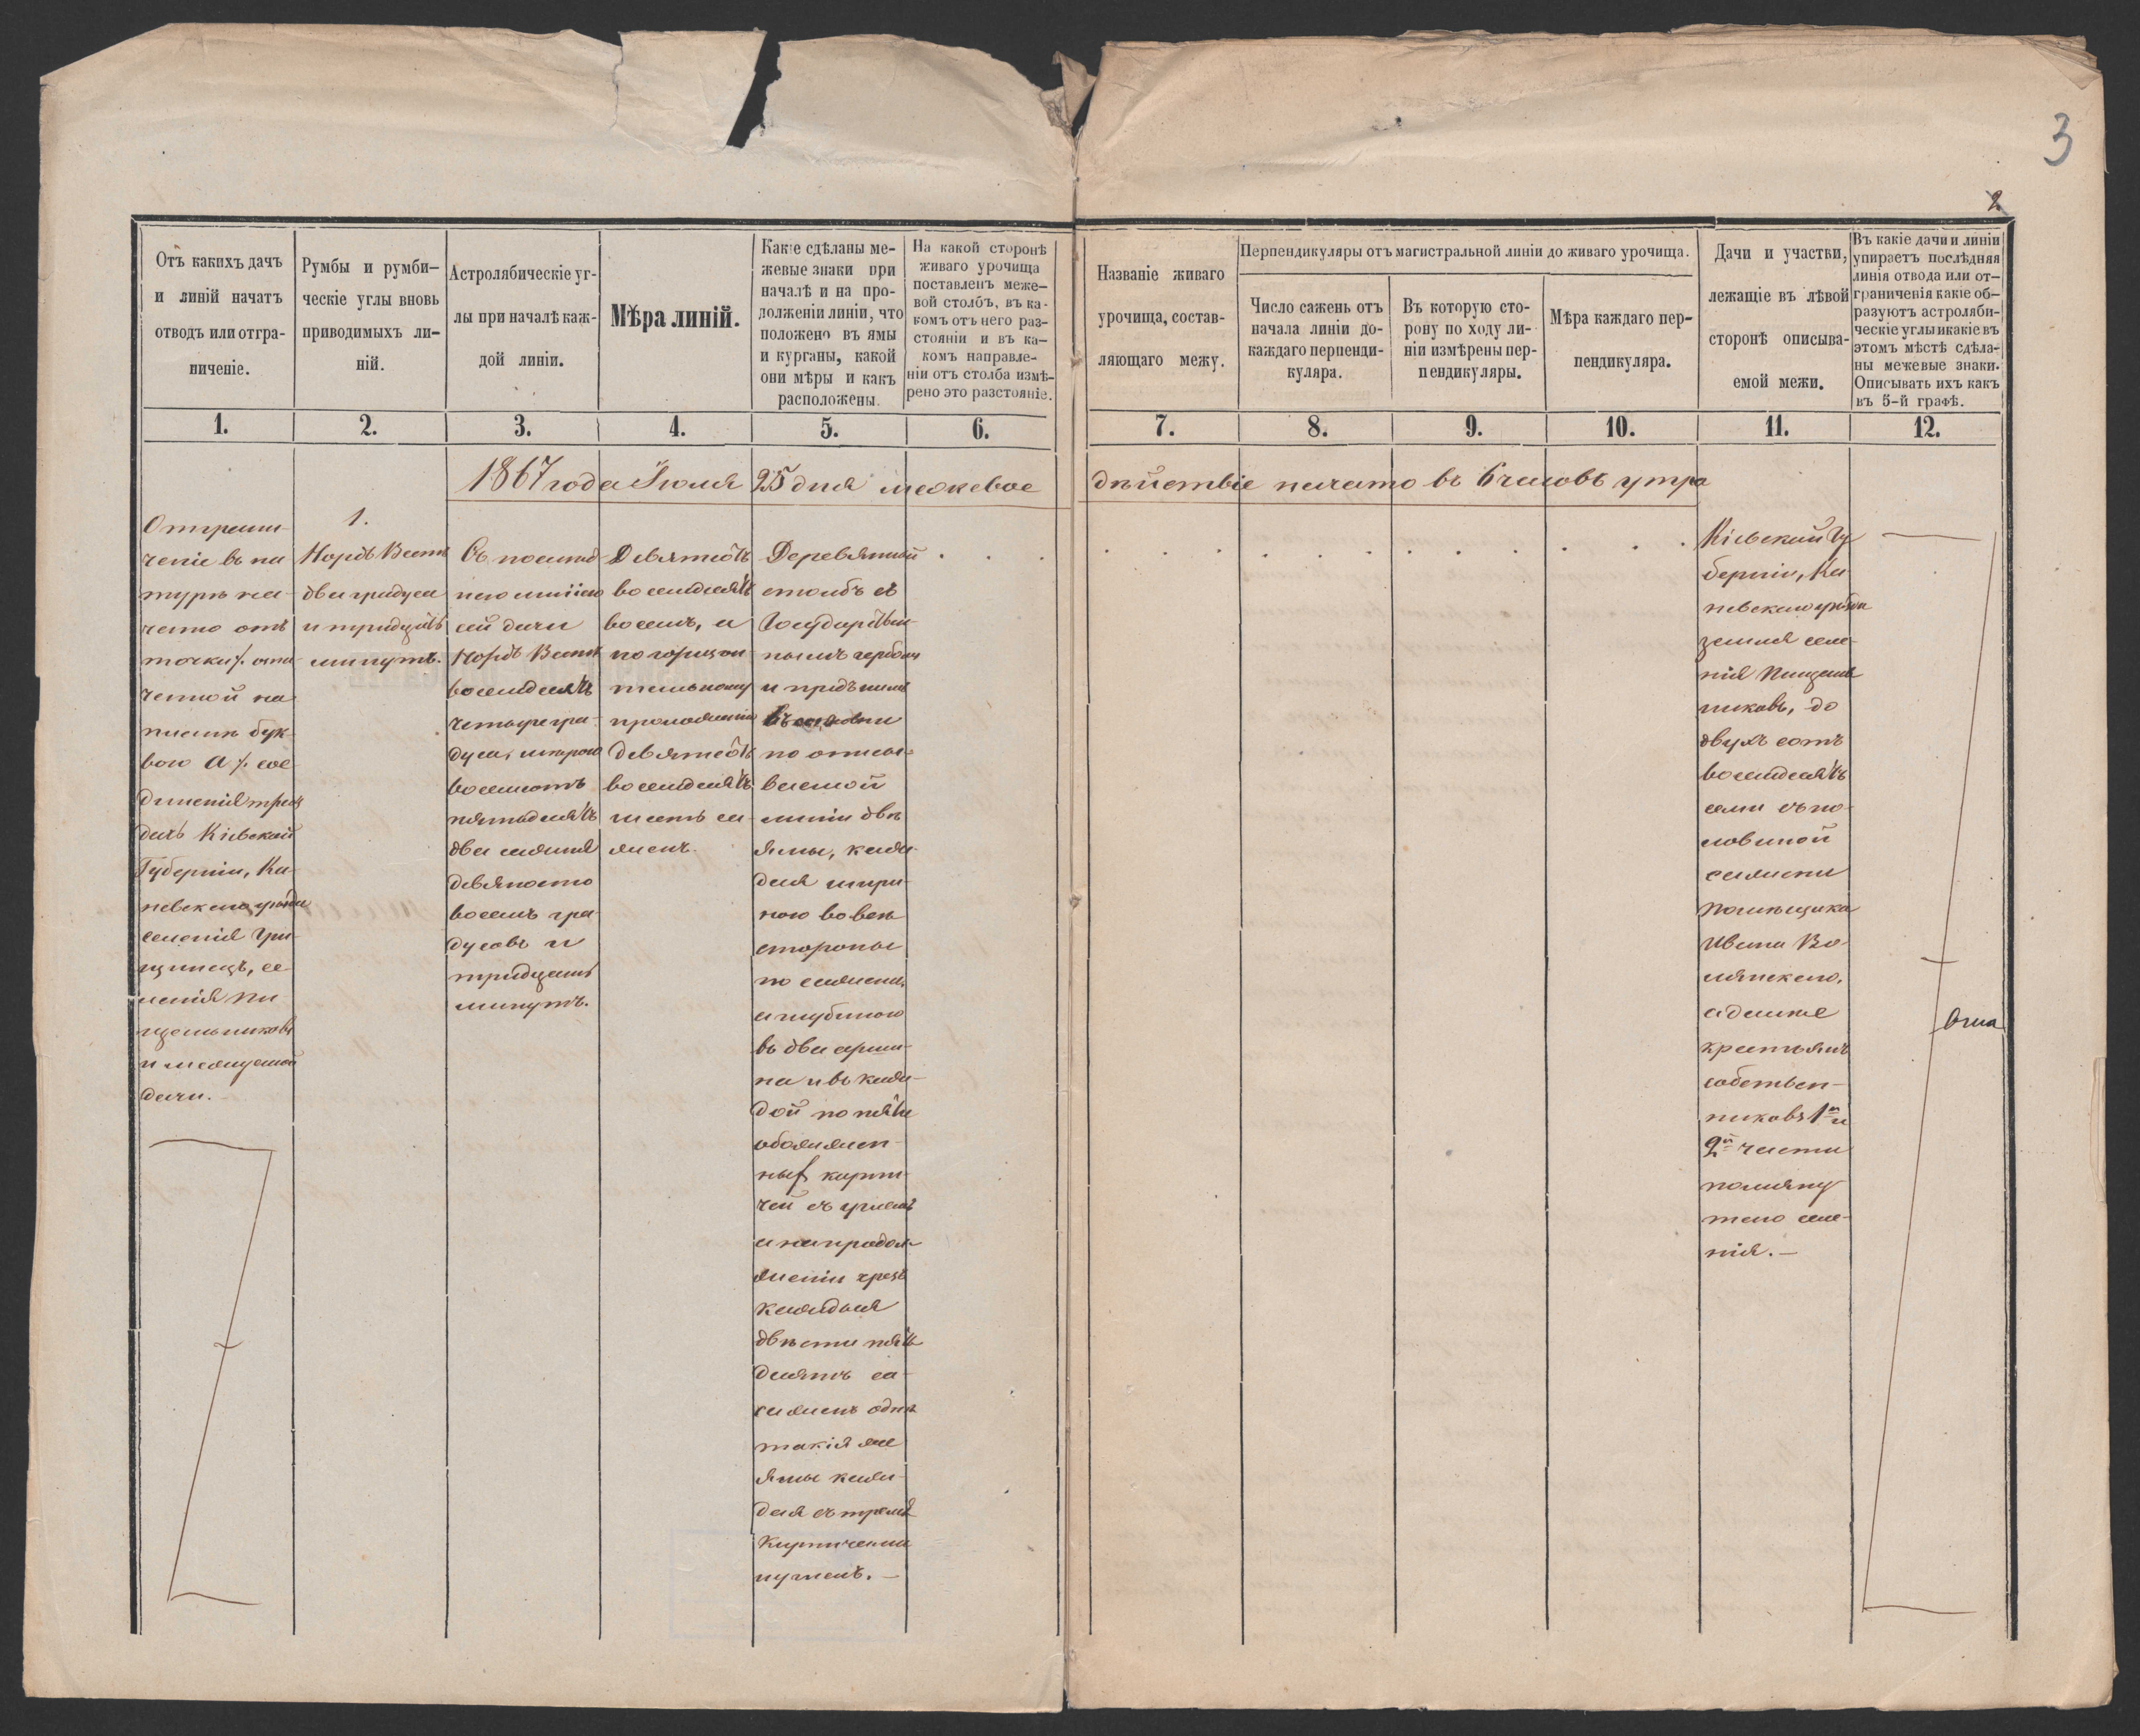 3
2
Отъ какихъ дачъ
и линій начатъ
отводъ или отгра-
ниченіе.
Румбы и румби-
ческіе углы вновь
приводимыхъ ли-
ній.
Астролябическіе уг-
лы при началѣ каж-
дой линіи.
Мѣра линій.
Какіе сдѣланы ме-
жевые знаки при
началѣ и на про-
долженіи линіи, что
положено въ ямы
и курганы, какой
они мѣры и какъ
расположены.
На какой сторонѣ
живаго урочища
поставленъ меже-
вой столбъ, въ ка-
комъ отъ него раз-
стояніи и въ ка-
комъ направле-
ніи отъ столба измѣ-
рено это разстояніе.
Названіе живаго
урочища, состав-
ляющаго межу.
Перпендикуляры отъ магистральной линіи до живаго урочища.
Число сажень отъ
начала линіи до
каждаго перпенди-
куляра.
Въ которую сто-
рону по ходу ли-
ніи измѣрены пер-
пендикуляры.
Мѣра каждаго пер-
пендикуляра.
Дачи и участки,
лежащіе въ лѣвой
сторонѣ описыва-
емой межи.
Въ какіе дачи и линіи
упираетъ послѣдняя
линія отвода или от-
граниченія какіе об-
разуютъ астроляби-
ческіе углы и какіе въ
этомъ мѣстѣ сдѣла-
ны межевые знаки.
Описывать ихъ какъ
въ 5-й графѣ.
1. 2. 3. 4. 5. 6. 7. 8. 9. 10. 11. 12.
1867 года Іюля 25 дня межевое дѣйствіе начато въ 6 часовъ утра
Отграни-
ченіе въ на
турѣ на-
чато отъ
точки /. озна
ченной на
планѣ бук-
вою А /. сое
диненія трехъ
дачъ Кіевской
Губерніи, Ка-
невскаго уѣзда
селенія Гри-
щинецъ, се-
ленія Пи
щальниковъ
и межуемой
дачи.
1.
Нордъ Вестъ
два градуса
и тридцать
минутъ.
Съ послѣд-
нею линіею
сей дачи
Нордъ Вестъ
восемдесятъ
четыре гра-
дуса, мѣрою
восемсотъ
пятьдесятъ
два сажня
девяносто
восемь гра-
дусовъ и
тридцать
минутъ.
Девятсотъ
восемдесятъ
восемь, а
по горизон-
тальному
проложенію
девятсотъ
восемдесятъ
шесть са-
женъ.
Деревянный
столбъ съ
Государствен-
нымъ гербомъ
и предъ нимъ
по описы-
ваемой
линіи двѣ
ямы, каж-
дая шири-
ною во всѣ
стороны
по сажени,
а глубиною
въ два арши-
на и въ каж-
дой по пяти
обожжен-
ныхъ кирпи-
чей съ углемъ
а на продол-
женіи чрезъ
каждыя
двѣсти пять
десятъ са-
саженъ однѣ
такія же
ямы каж-
дая съ тремя
кирпичами
и углемъ.—
Кіевской Гу
берніи, Ка
невскаго уѣзда
земля селе-
нія Пищаль
никовъ, до
двухъ сотъ
восемдесятъ
семи съ по-
ловиной
сажени
помѣщика
Ивана Во-
а далѣе
крестьянъ
собствен-
никовъ 1й и
2й части
помяну
таго селе-
нія.—